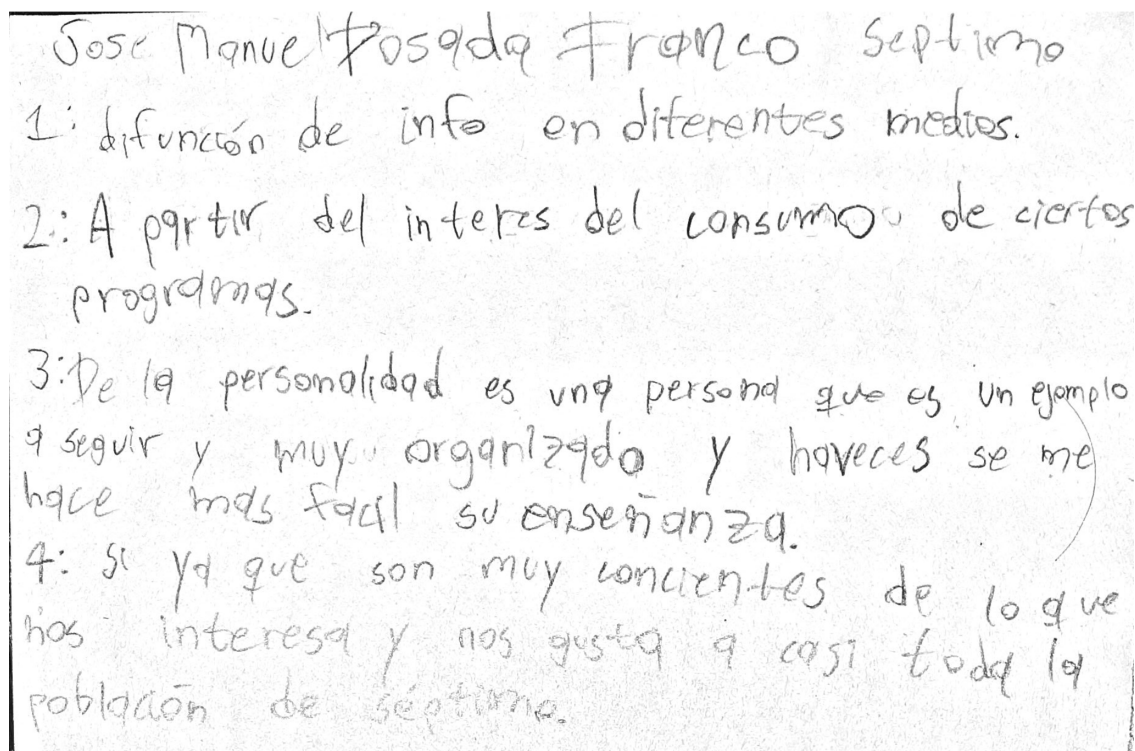 Jose Manuel Posada Franco Septimo
1: difunción de info en diferentes medios.
2: A partir del interes del consumo de ciertos
programas.
3: De la personalidad es una persona que es un ejemplo
a seguir y muy organizado y haveces se me
hace mas facil su enseñanza.
4: si ya que son muy concientes de lo que
nos interesa y nos gusta a casi toda la
población de séptimo.